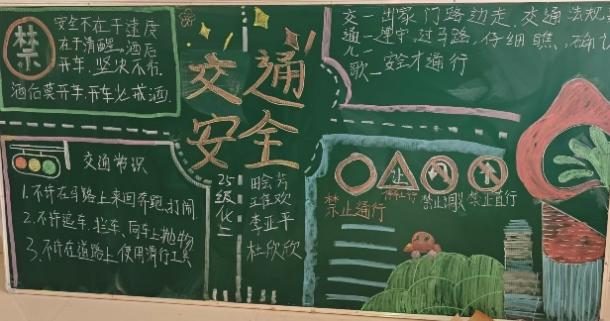 禁
安全不在于速度
在于清醒。酒后
开车,坚决不行
酒后莫开车,开车必戒酒
交通
安全
交一出家门路边走,交通法规
通一遵守,过马路,仔细瞧,确认
儿一安全才通行
歌一
交通常识
1.不许在马路上来回奔跑,打闹
2.不许追车、拦车、向车上抛物
3.不许在道路上使用滑行工具
25级化二
田会芳
李亚平
杜欣欣
让
禁止通行
禁止掉头
禁止直行